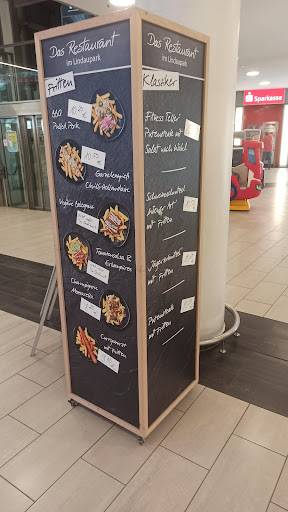 Das Restaurant
im Lindaupark
Fritten
BBQ
Pulled Pork
Garnelenspieß
Chili-
Vegane Bolognese
Tomatensalsa &
Champignons
Mozzarella
Currywurst
mit Fritten
Das Restaurant
im Lindaupark
Klassiker
Fitness Teller
Putensteak mit
Salat nach Wahl
Schweineschnitzel
Wiener Art
mit Fritten
Jägerschnitzel
mit Fritten
Putensteak
mit Fritten
Sparkasse